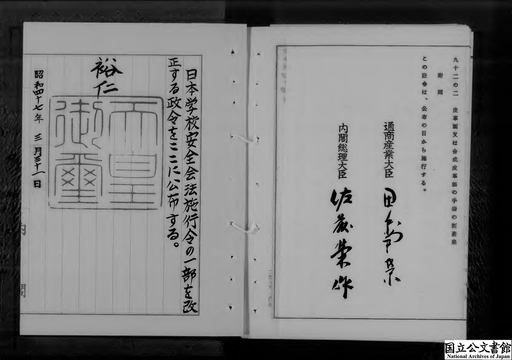 九十二の二 皮革製又は合成皮革製の手袋の製造業
附則
この政令は、公布の日から施行する。
通商産業大臣 田中角栄
内閣総理大臣 佐藤榮作
日本学校安全会法施行令の一部を改
正する政令をここに公布する。
裕仁
天皇
御璽
昭和四十七年 三月三十一日
内閣
国立公文書館
National Archives of Japan